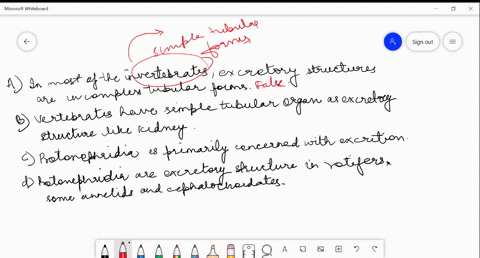 Microsoft Whiteboard
Sign out
simple tubular
forms
A) In most of the invertebrates, excretory structures
are in complex tubular forms. False
B) Vertebrates have simple tubular organ as excretory
structure like kidney.
c) Protonephridia is primarily concerned with excretion.
d) Protonephridia are excretory structure in rotifers,
some annelids and cephalochordates.